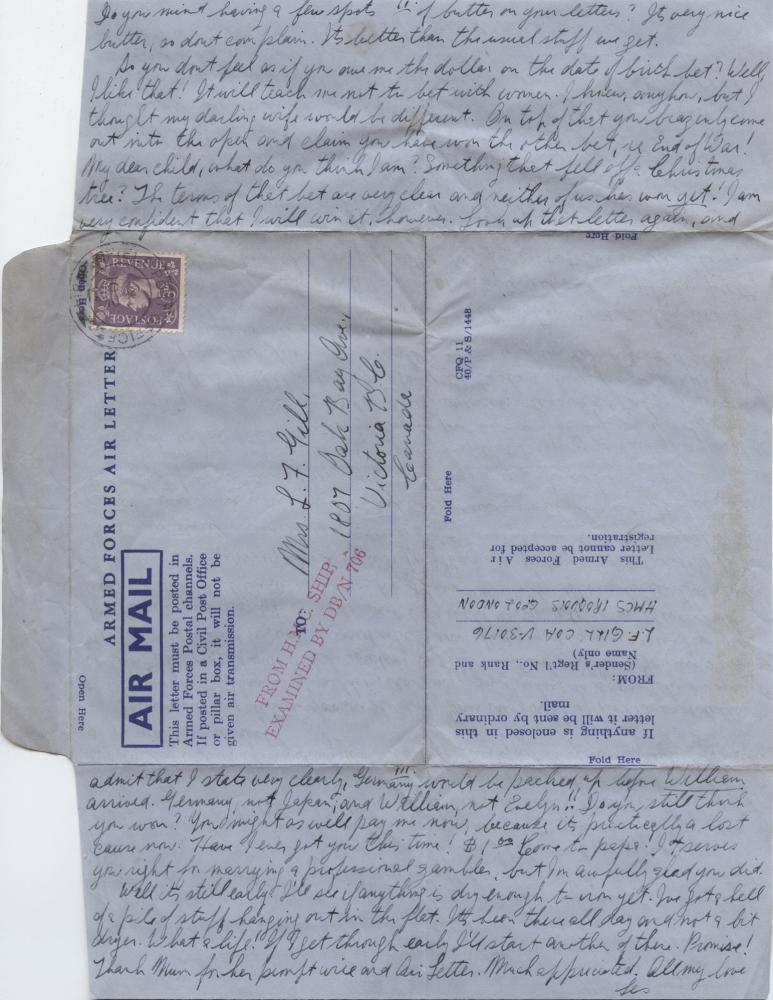 Do you mind having a few spots !! of butter on your letters? Its very nice
butter, so dont complain. Its better than the usual stuff we get.
So you dont feel as if you owe me the dollar on the date of birth bet? Well,
I like that! It will teach me not to bet with women. I knew, anyhow, but I
thought my darling wife would be different. On top of that you brazenly come
out into the open and claim you have won the other bet, re End of War!
My dear child, what do you think I am? Something that fell off a Christmas
tree? The terms of that bet are very clear and neither of us has won yet! I am
very confident that I will win it, however. Look up that letter again, and
Fold Here
REVENUE
POSTAGE
Open Here
ARMED FORCES AIR LETTER
AIR MAIL
This letter must be posted in
Armed Forces Postal channels.
If posted in a Civil Post Office
or pillar box, it will not be
given air transmission.
Open Here
TO:
Mrs. L. F. Gill,
1807 Oak Bay Ave.,
Victoria B.C.
Canada
FROM H.M.C. SHIP,
EXAMINED BY DB/N 706
CFQ 11
40/P & S/1448
Fold Here
This Armed Forces Air
Letter cannot be accepted for
registration.
HMCS IROQUOIS GPO LONDON
L.F. GILL COA V-30176
(Sender's Regt'l No., Rank and
Name only)
FROM:
If anything is enclosed in this
letter it will be sent by ordinary
mail.
Fold Here
admit that I state very clearly, Germany !!! would be packed up before William
arrived. Germany, not Japan, and William, not Evelyn!! Do you still think
you won? You might as well pay me now, because its practically a lost
cause now. Have I ever got you this time! $1.00 Come to papa! It serves
you right for marrying a professional gambler, but I'm awfully glad you did.
Well its still early. I'll see if anything is dry enough to iron yet. I've got a hell
of a pile of stuff hanging out in the flat. Its been there all day and not a bit
dryer. What a life! If I get through early I'll start another of these. Promise!
Thank Mum for her prompt wire and Air Letter. Much appreciated. All my love
Les